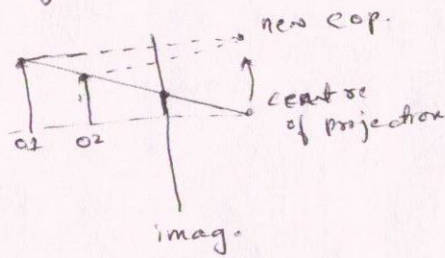 new cop.
centre
of projection
01
02
imag.